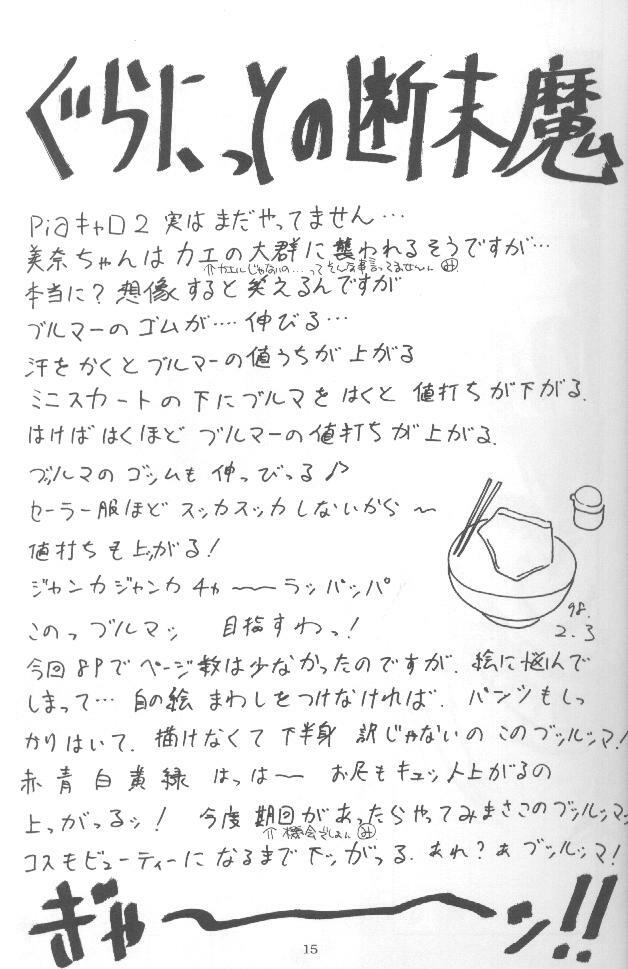 ぐらにっとの断末魔
Piaキャロ2 実は まだやってません…
美奈ちゃんは カエの大群に襲われるそうですが…
⇧カエルじゃないの…ってそんな事言ってませんん
本当に? 想像すると笑えるんですが
ブルマーのゴムが…. 伸びる…
汗をかくとブルマーの値うちが上がる
ミニスカートの下にブルマをはくと 値打ちが下がる.
はけばはくほど ブルマーの値打ちが上がる.
ブッルマの ゴッムも 伸っびっる♪
セーラー服ほど スッカスッカしないから〜
値打ちも上ッがる!
ジャンカジャンカ チャ〜〜 ラッパッパ
このっ ブルマッ 目指すわっ!
98.
2.3
今回8Pで ページ数は少なかったのですが. 絵に悩んで
しまって… 自の絵 まわしをつけなければ. パンツもしっ
かりはいて. 描けなくて 下半身 訳じゃないの このブッルッマ!
赤 青 白 黄 緑 はっは〜 お尻もキュッ上がるの
上っがっるッ! 今度 期回があったらやってみまさこのブッルッマッ
⇧機会でしょん
コスもビューティーになるまで 下ッがっる. あれ?あ ブッルッマ!
ぎゃ〜ン!!
15